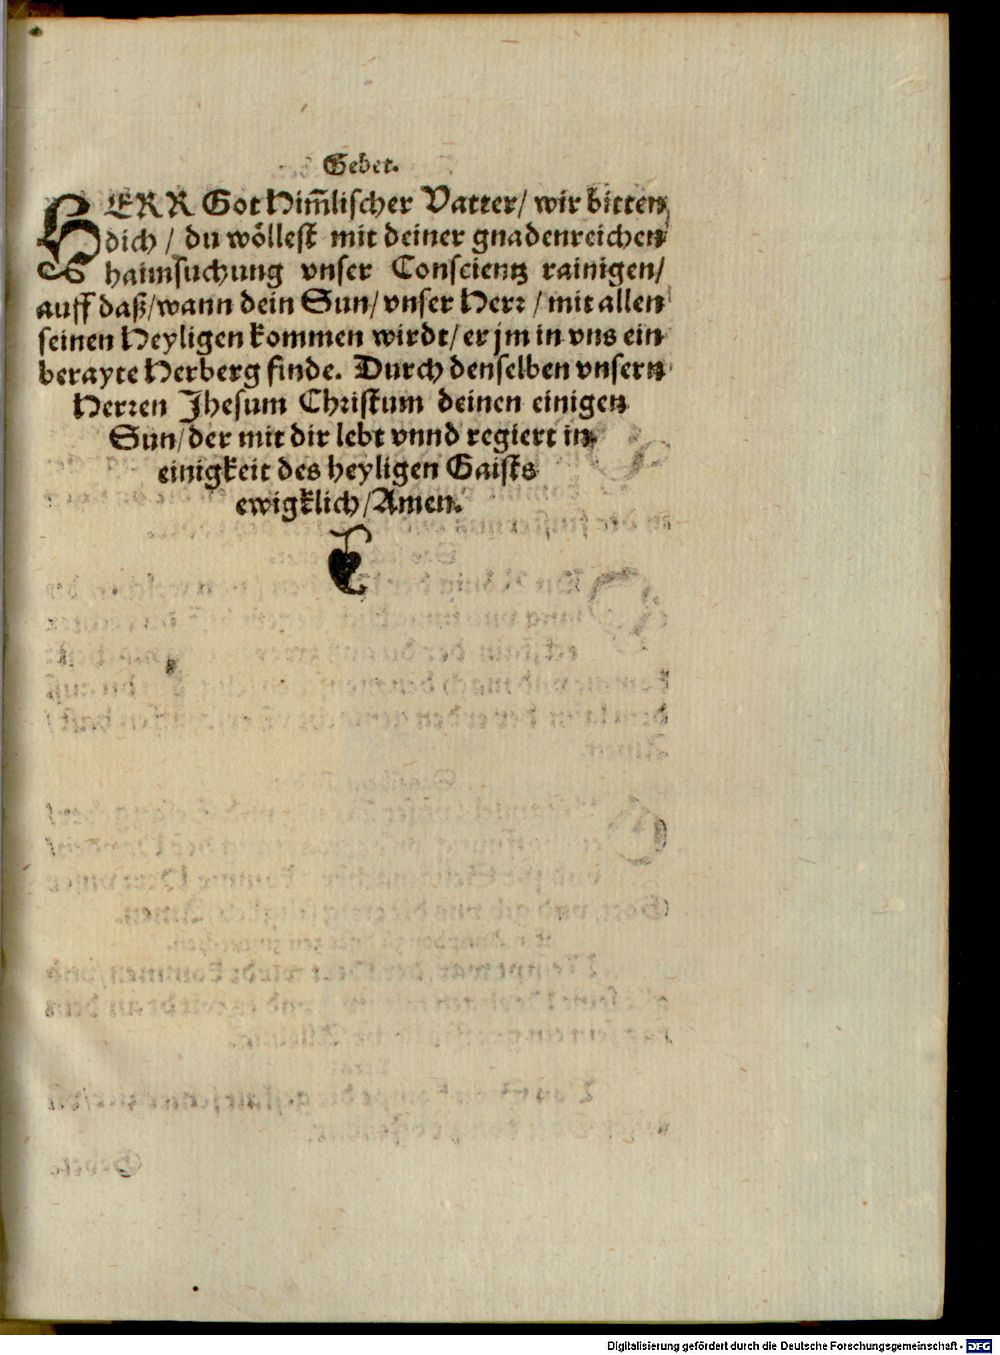 Gebet.
HERR Got Him̄lischer Vatter/ wir bitten
dich / du wöllest mit deiner gnadenreichen
haimsuchung vnser Conscientz rainigen/
auff daß/wann dein Sun/ vnser Herr / mit allen
seinen Heyligen kommen wirdt/ er jm in vns ein
berayte Herberg finde. Durch denselben vnsern
Herren Jhesum Christum deinen einigen
Sun/ der mit dir lebt vnnd regiert in
einigkeit des heyligen Gaists
ewigklich/Amen.
Digitalisierung gefördert durch die Deutsche Forschungsgemeinschaft - DFG